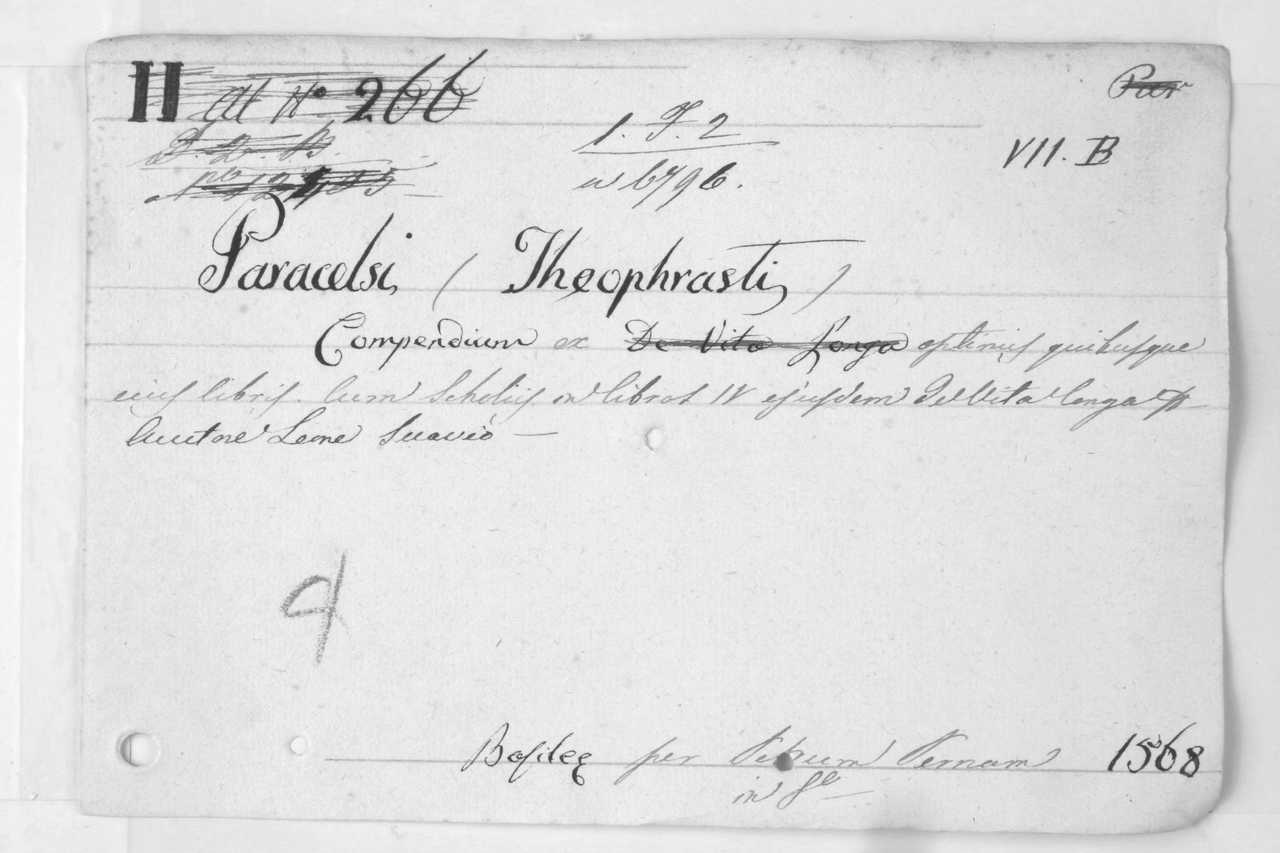 H at No 266
Par
1. F. 2
VII. B
w 6796.
Paracelsi ( Theophrasti )
Compendium ex De Vita Longa optimis quibusque
eius libris. Cum Scholiis in libros IV ejusdem De Vita longa
Auctore Leone Suavio —
9
Basileę per Petrum Pernam 1568
in 8º